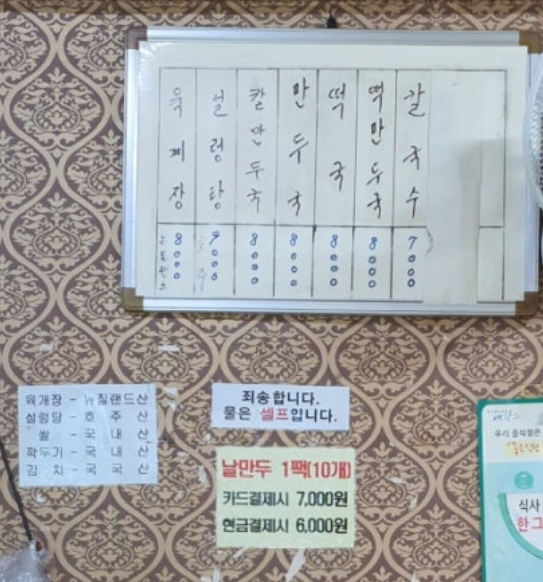 육계장 8000
설렁탕 9000
칼만두국 8000
만두국 8000
떡국 8000
떡만두국 8000
칼국수 7000
육개장 - 뉴질랜드산
설렁당 - 호주산
쌀 - 국내산
깍두기 - 국내산
김치 - 국국산
죄송합니다.
물은 셀프입니다.
날만두 1팩(10개)
카드결제시 7,000원
현금결제시 6,000원
우리 음식점은
식사
한그